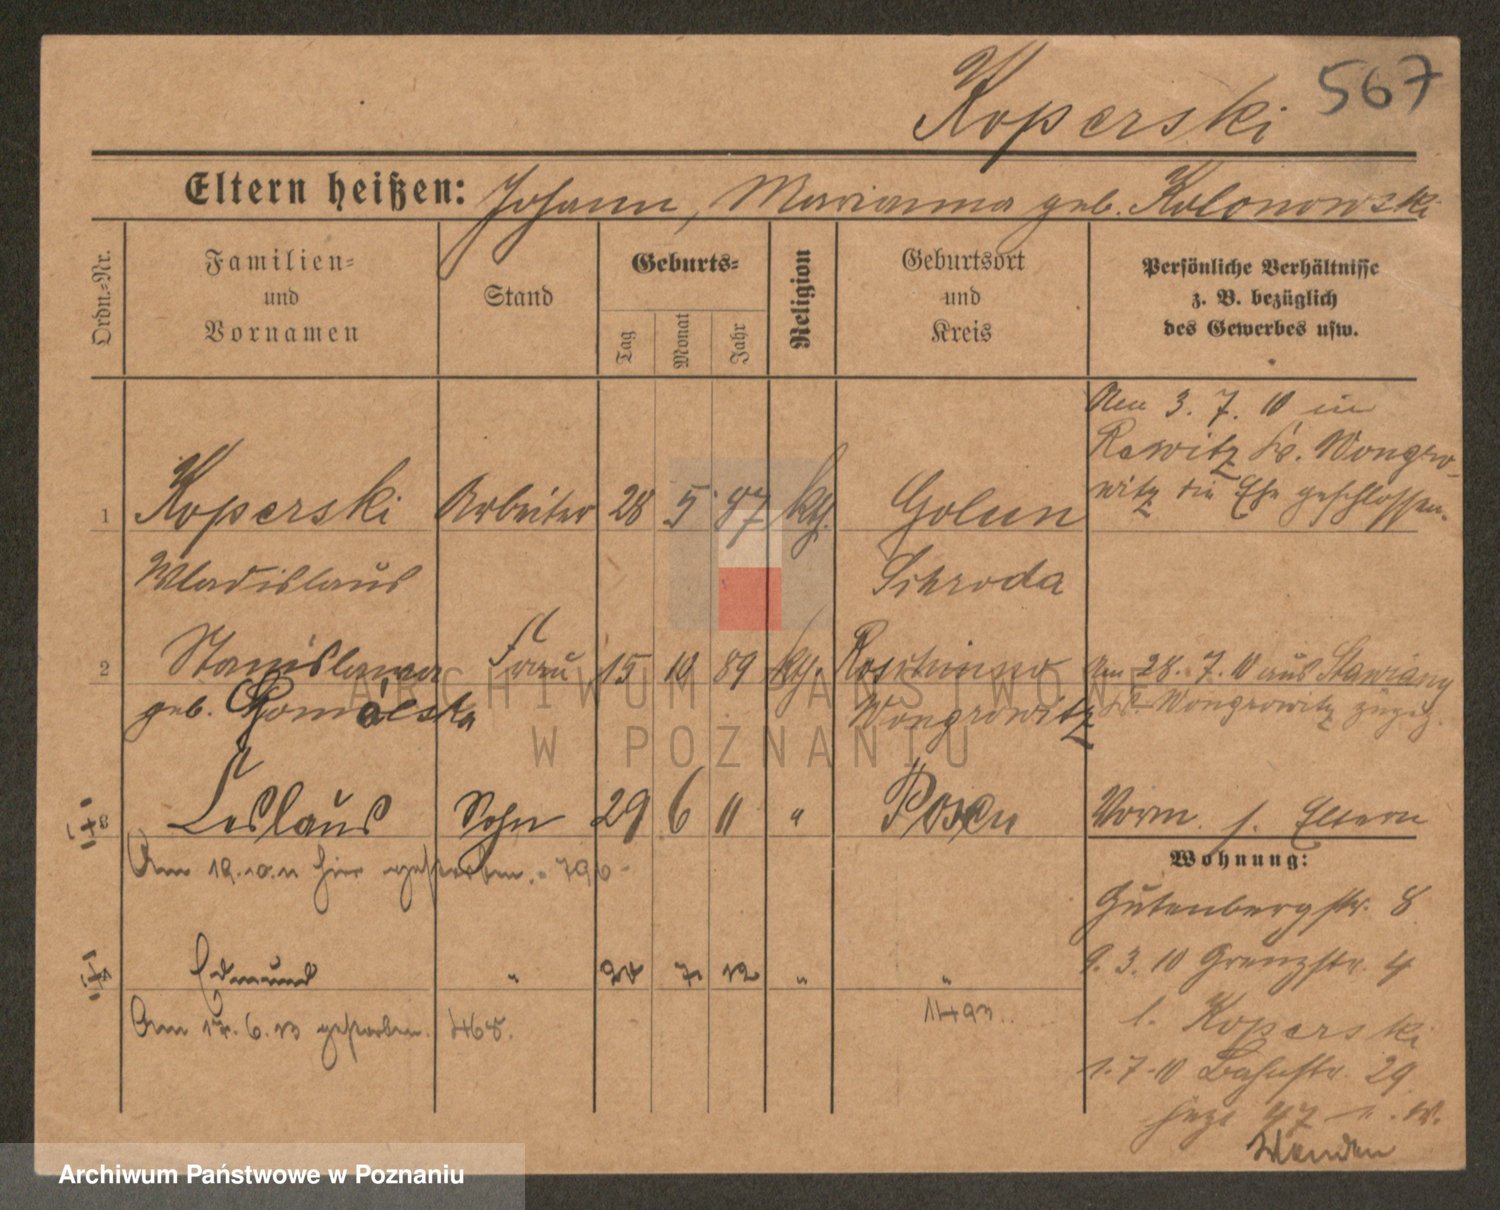 567
Koperski
Eltern heißen: Johann, Marianna geb. Kolonowski
Ordn.-Nr.
Familien-
und
Vornamen
Stand
Geburts-
Tag
Monat
Jahr
Religion
Geburtsort
und
Kreis
Persönliche Verhältnisse
z. B. bezüglich
des Gewerbes usw.
Am 3. 7. 10 in
Rewitz Kr. Wongro-
witz die Ehe geschlossen.
1 Koperski Arbeiter 28 5 87 kth. Golun
Wladislaus Schroda
2 Stanislawa Frau 15 10 89 kth. Am 28. 7. 10 aus
geb. Gomolska Wongrowitz Kr. Wongrowitz zugez.
3 Ceslaus Sohn 29 6 11 " Posen Vorm. s. Eltern
Am 19.10.11 hier gestorben. - 796 -
Wohnung:
Gutenbergstr. 8
Edmund " 20 7. 12 " "
9. 3. 10 Grenzstr. 4
Am 17. 6. 13 gestorben. 468. 1493.
b. Koperski
1. 7. 10 Bahnstr. 29
Wenden
ARCHIWUM PAŃSTWOWE
W POZNANIU
Archiwum Państwowe w Poznaniu